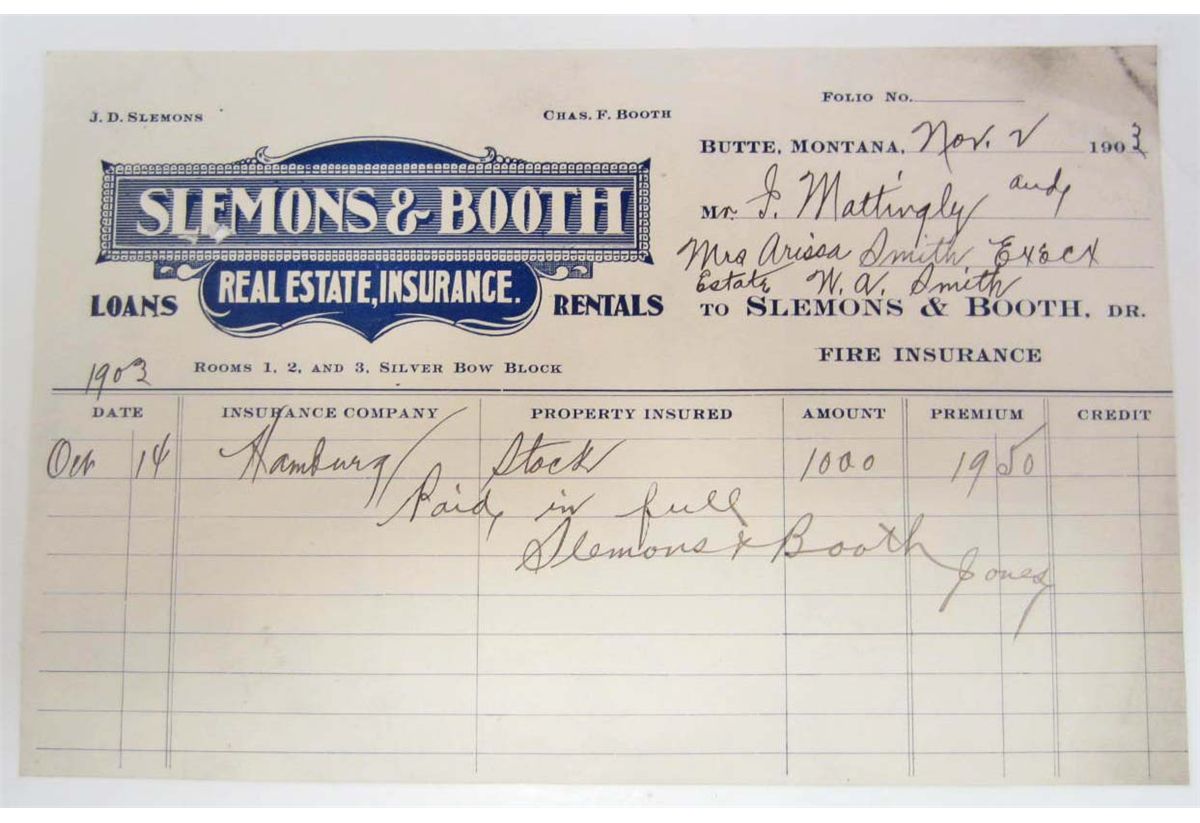 J. D. SLEMONS
CHAS. F. BOOTH
SLEMONS & BOOTH
REAL ESTATE, INSURANCE.
LOANS
RENTALS
ROOMS 1, 2, AND 3, SILVER BOW BLOCK
FOLIO NO.
BUTTE, MONTANA, Nov. 2 1903
Mr. J. Mattingly and
Mrs Arissa Smith Execx
Estate W. A. Smith
TO SLEMONS & BOOTH, DR.
FIRE INSURANCE
1903
DATE INSURANCE COMPANY PROPERTY INSURED AMOUNT PREMIUM CREDIT
Oct 14 Hamburg Stock 1000 19 50
Paid in full
Slemons & Booth
Jones